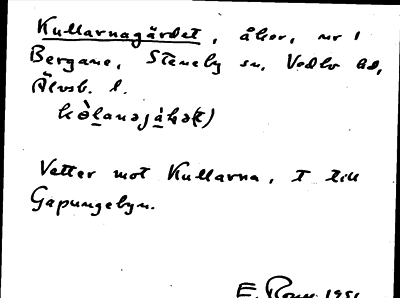 Kullarnagärdet, åker, nr 1
Bergane, Steneby sn, Vedbo hd,
Älvsb. l.
Vetter mot Kullarna, T till
Gapungebyn.
E.